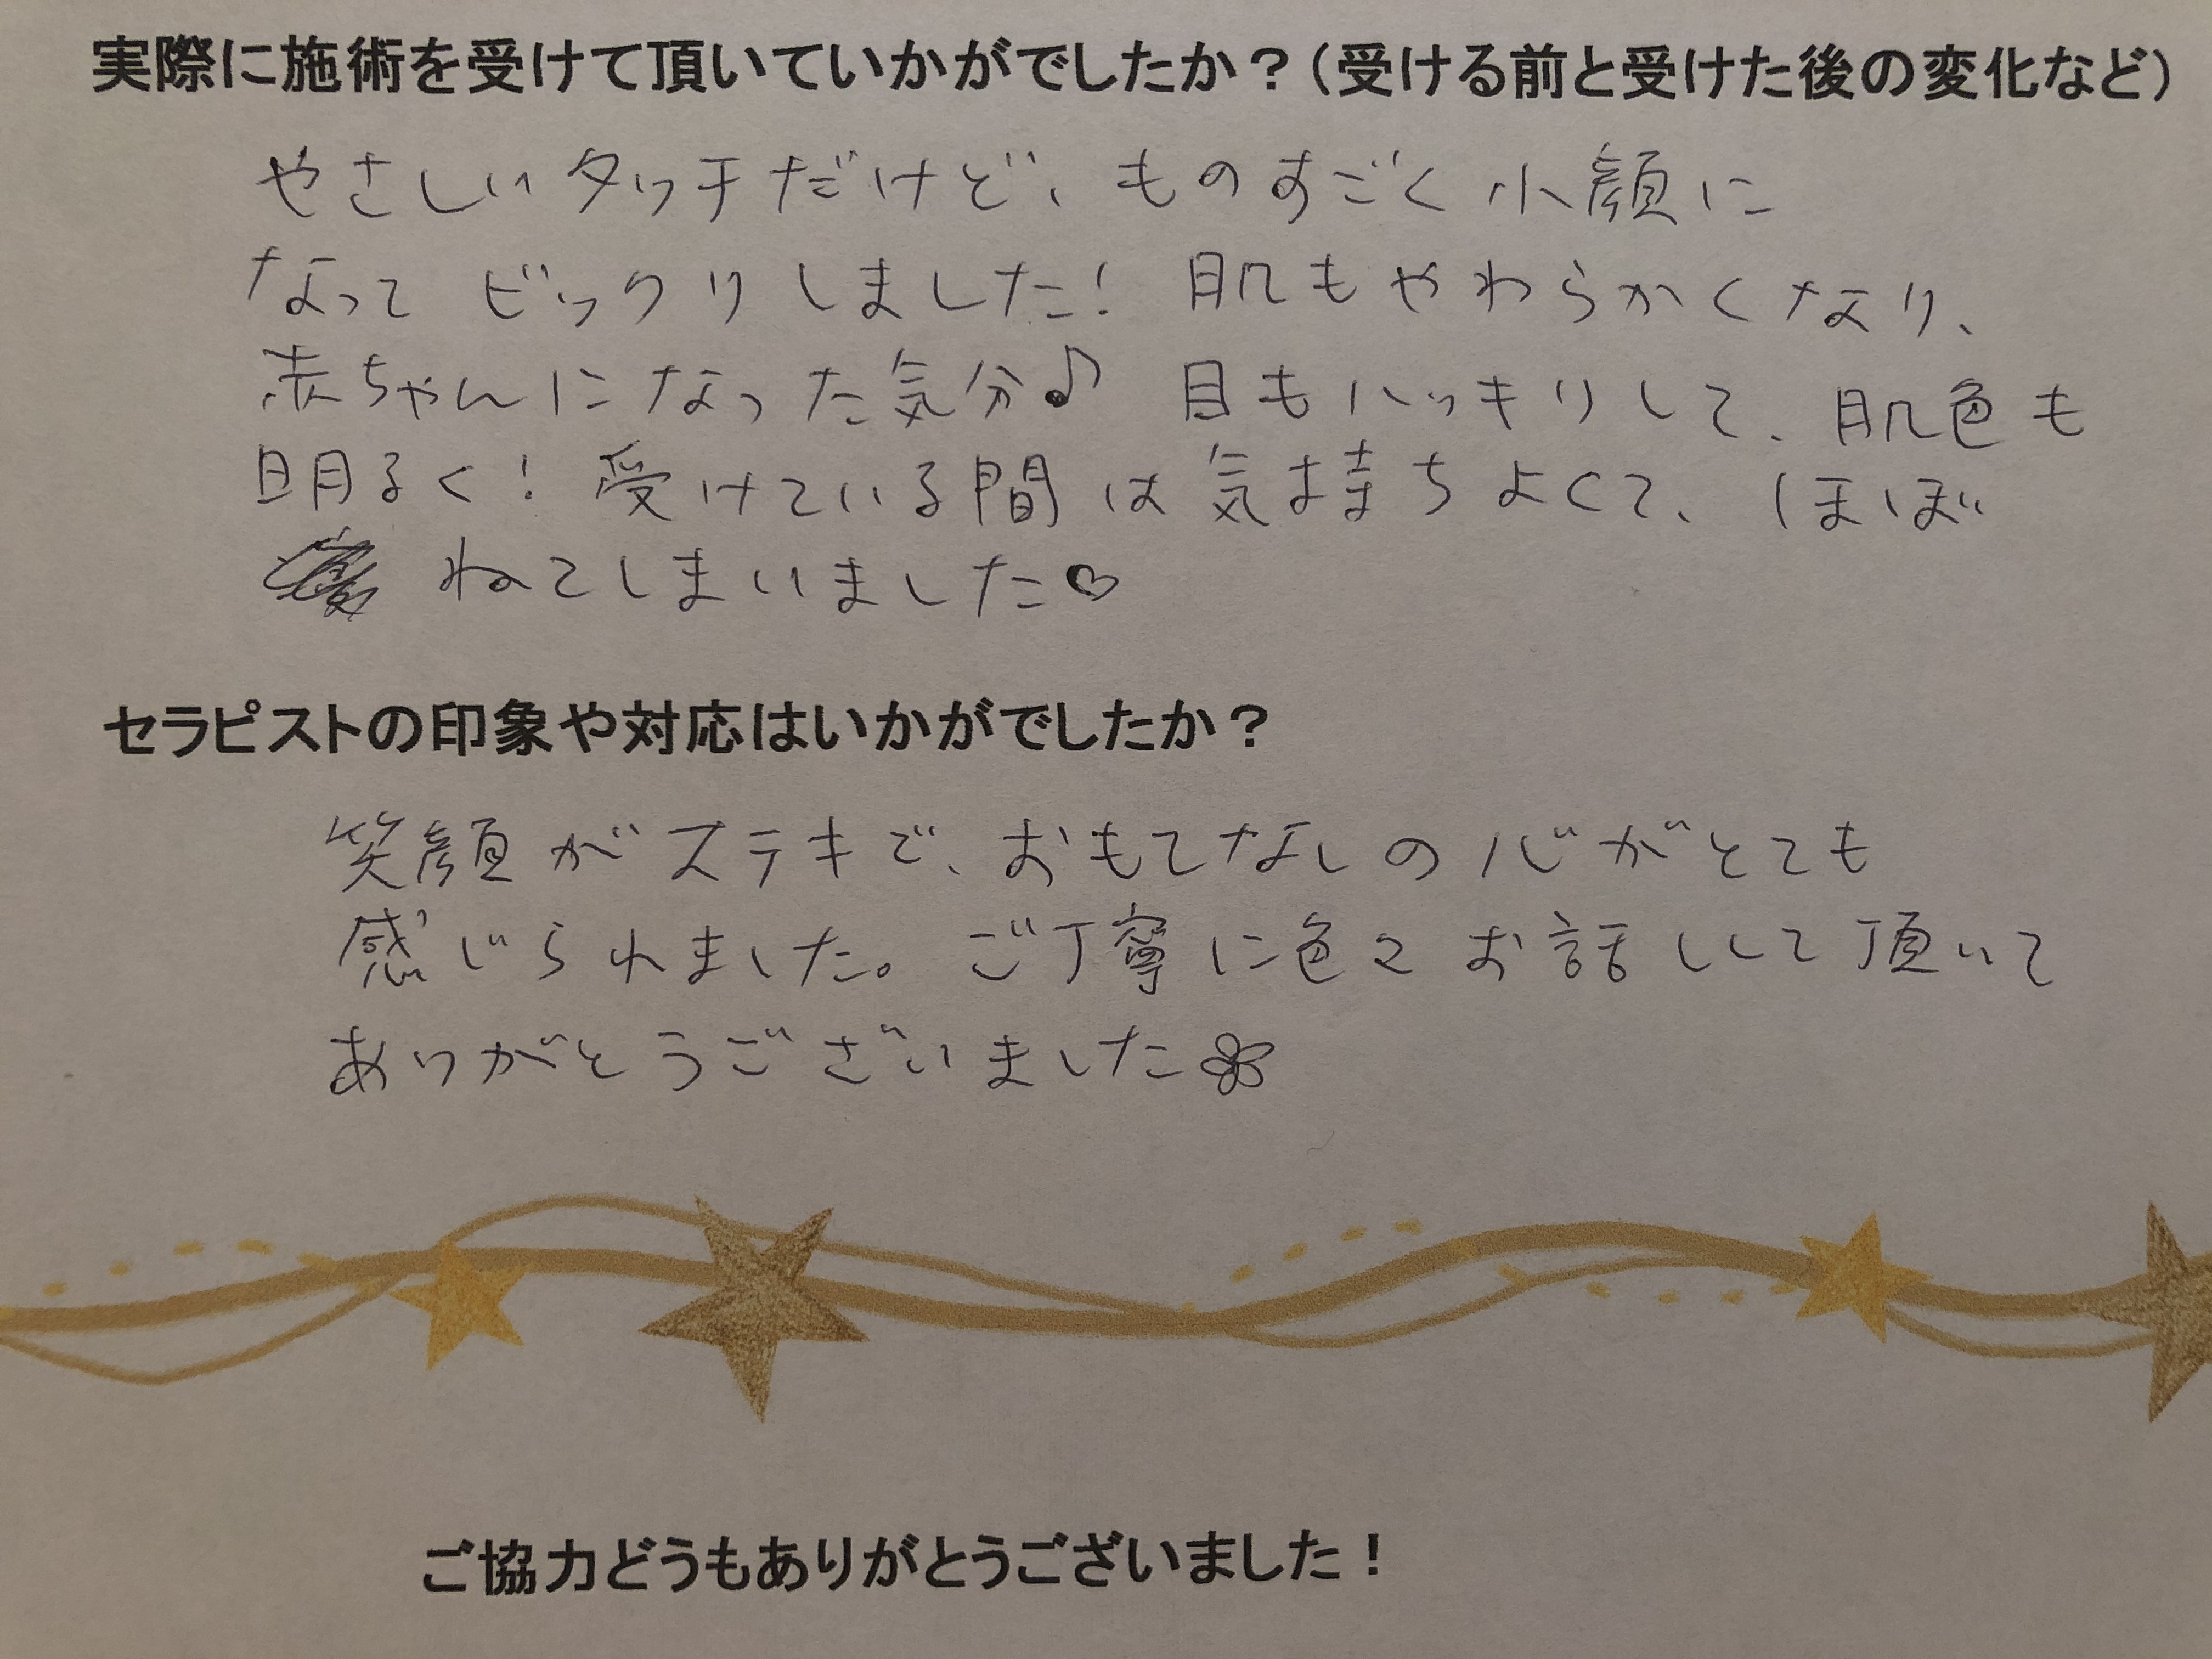 実際に施術を受けて頂いていかがでしたか？（受ける前と受けた後の変化など）
やさしいタッチだけど、ものすごく小顔に
なってビックリしました！肌もやわらかくなり、
赤ちゃんになった気分♪ 目もハッキリして、肌色も
明るく！受けている間は気持ちよくて、ほぼ
ねてしまいました♡
セラピストの印象や対応はいかがでしたか？
笑顔がステキで、おもてなしの心がとても
感じられました。ご丁寧に色々お話しして頂いて
ありがとうございました✿
ご協力どうもありがとうございました！